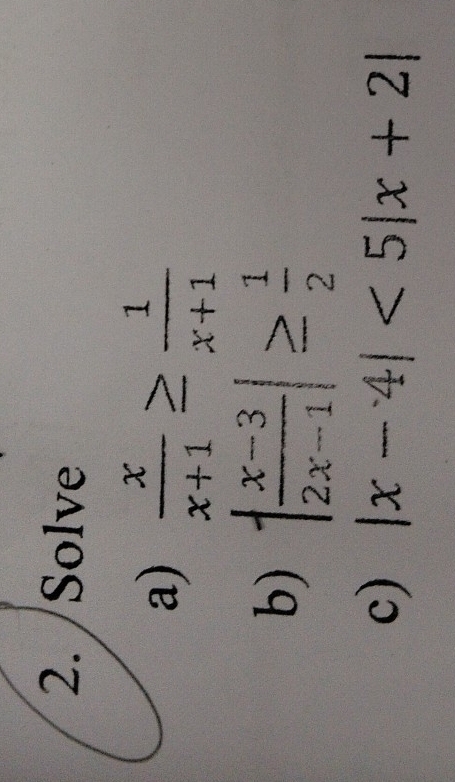 2. Solve
a) x/(x+1) ≥ 1/(x+1)
b) |(x-3)/(2x-1)| ≥ 1/2
c) |x - 4| < 5|x + 2|